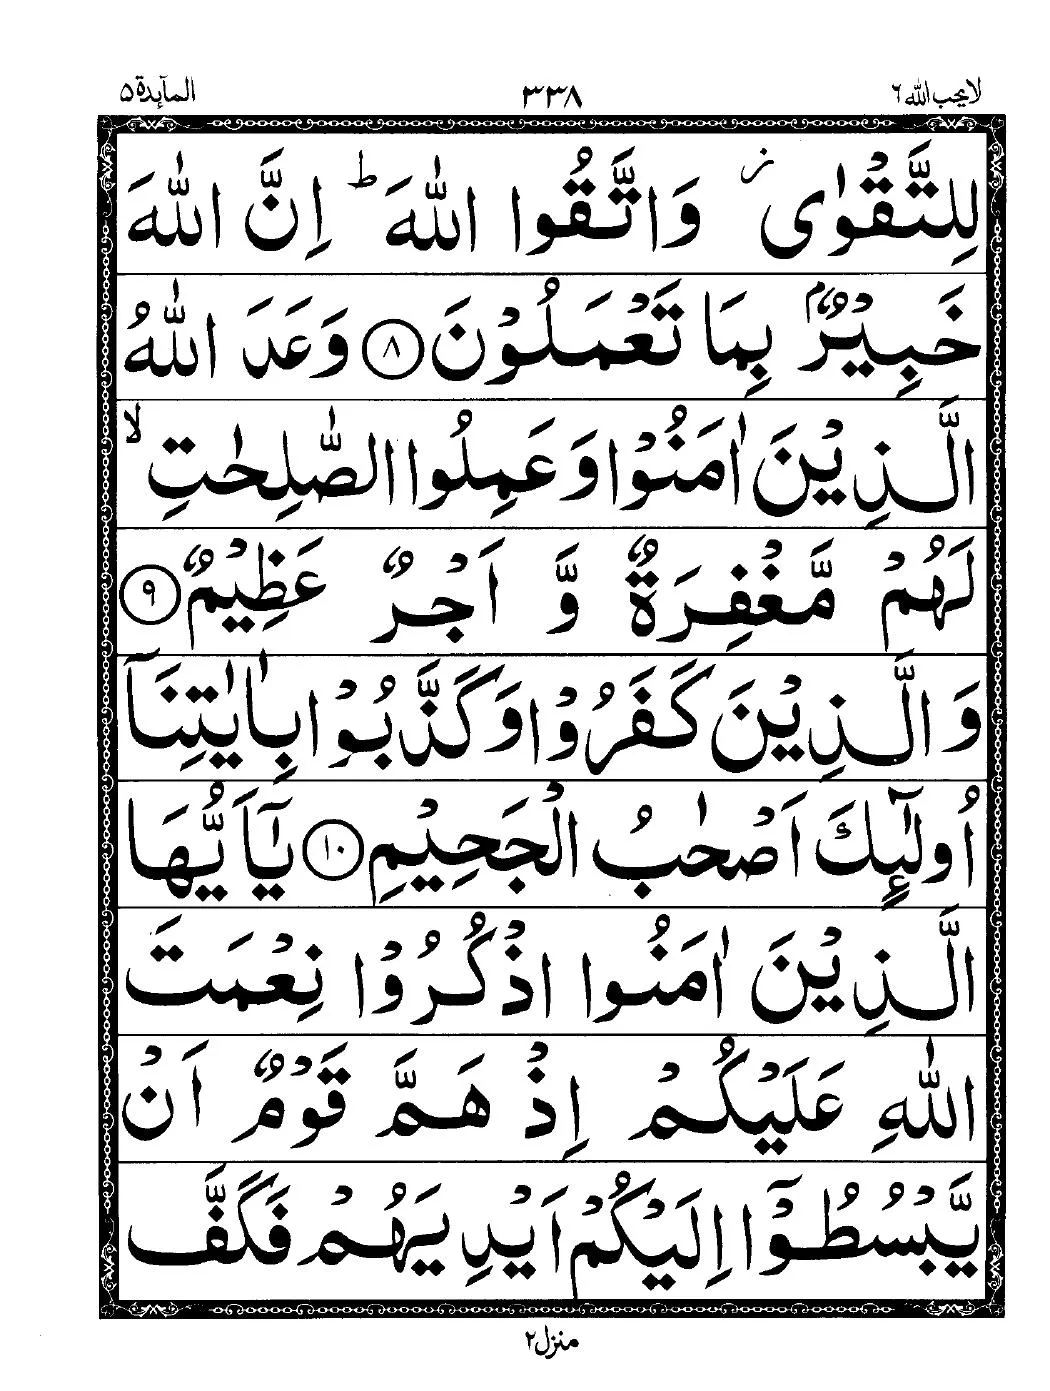 لا يحب الله ٦ ٣٣٨ المآىِٕدة ٥
لِلتَّقْوٰى ز وَاتَّقُوا اللّٰهَ ط اِنَّ اللّٰهَ
خَبِيْرٌۢ بِمَا تَعْمَلُوْنَ ٨ وَعَدَ اللّٰهُ
الَّذِيْنَ اٰمَنُوْا وَعَمِلُوا الصّٰلِحٰتِ لا
لَهُمْ مَّغْفِرَةٌ وَّ اَجْرٌ عَظِيْمٌ ٩
وَالَّذِيْنَ كَفَرُوْا وَكَذَّبُوْا بِاٰيٰتِنَآ
اُولٰٓئِكَ اَصْحٰبُ الْجَحِيْمِ ١٠ يٰٓاَيُّهَا
الَّذِيْنَ اٰمَنُوا اذْكُرُوْا نِعْمَتَ
اللّٰهِ عَلَيْكُمْ اِذْ هَمَّ قَوْمٌ اَنْ
يَّبْسُطُوْٓا اِلَيْكُمْ اَيْدِيَهُمْ فَكَفَّ
منزل ٢